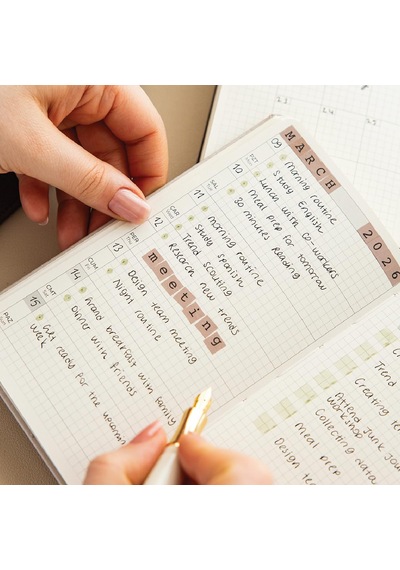 MARCH
2026
09
PZT
morning routine
Study English
Lunch with co-workers
meal prep for tomorrow
30 minutes Reading
10
SAL
11
morning routine
Study Spanish
Trend scouting
Research new trends
ÇAR
12
meeting
PER
13
Design team meeting
Night routine
CUM
14
Grand breakfast with family
Dinner with friends
CMT
15
Get ready for the
week
PAZ
Trend
Creating
Attend Junk Jou
workshop
Collecting data
Meal prep
Design te
23
24
25